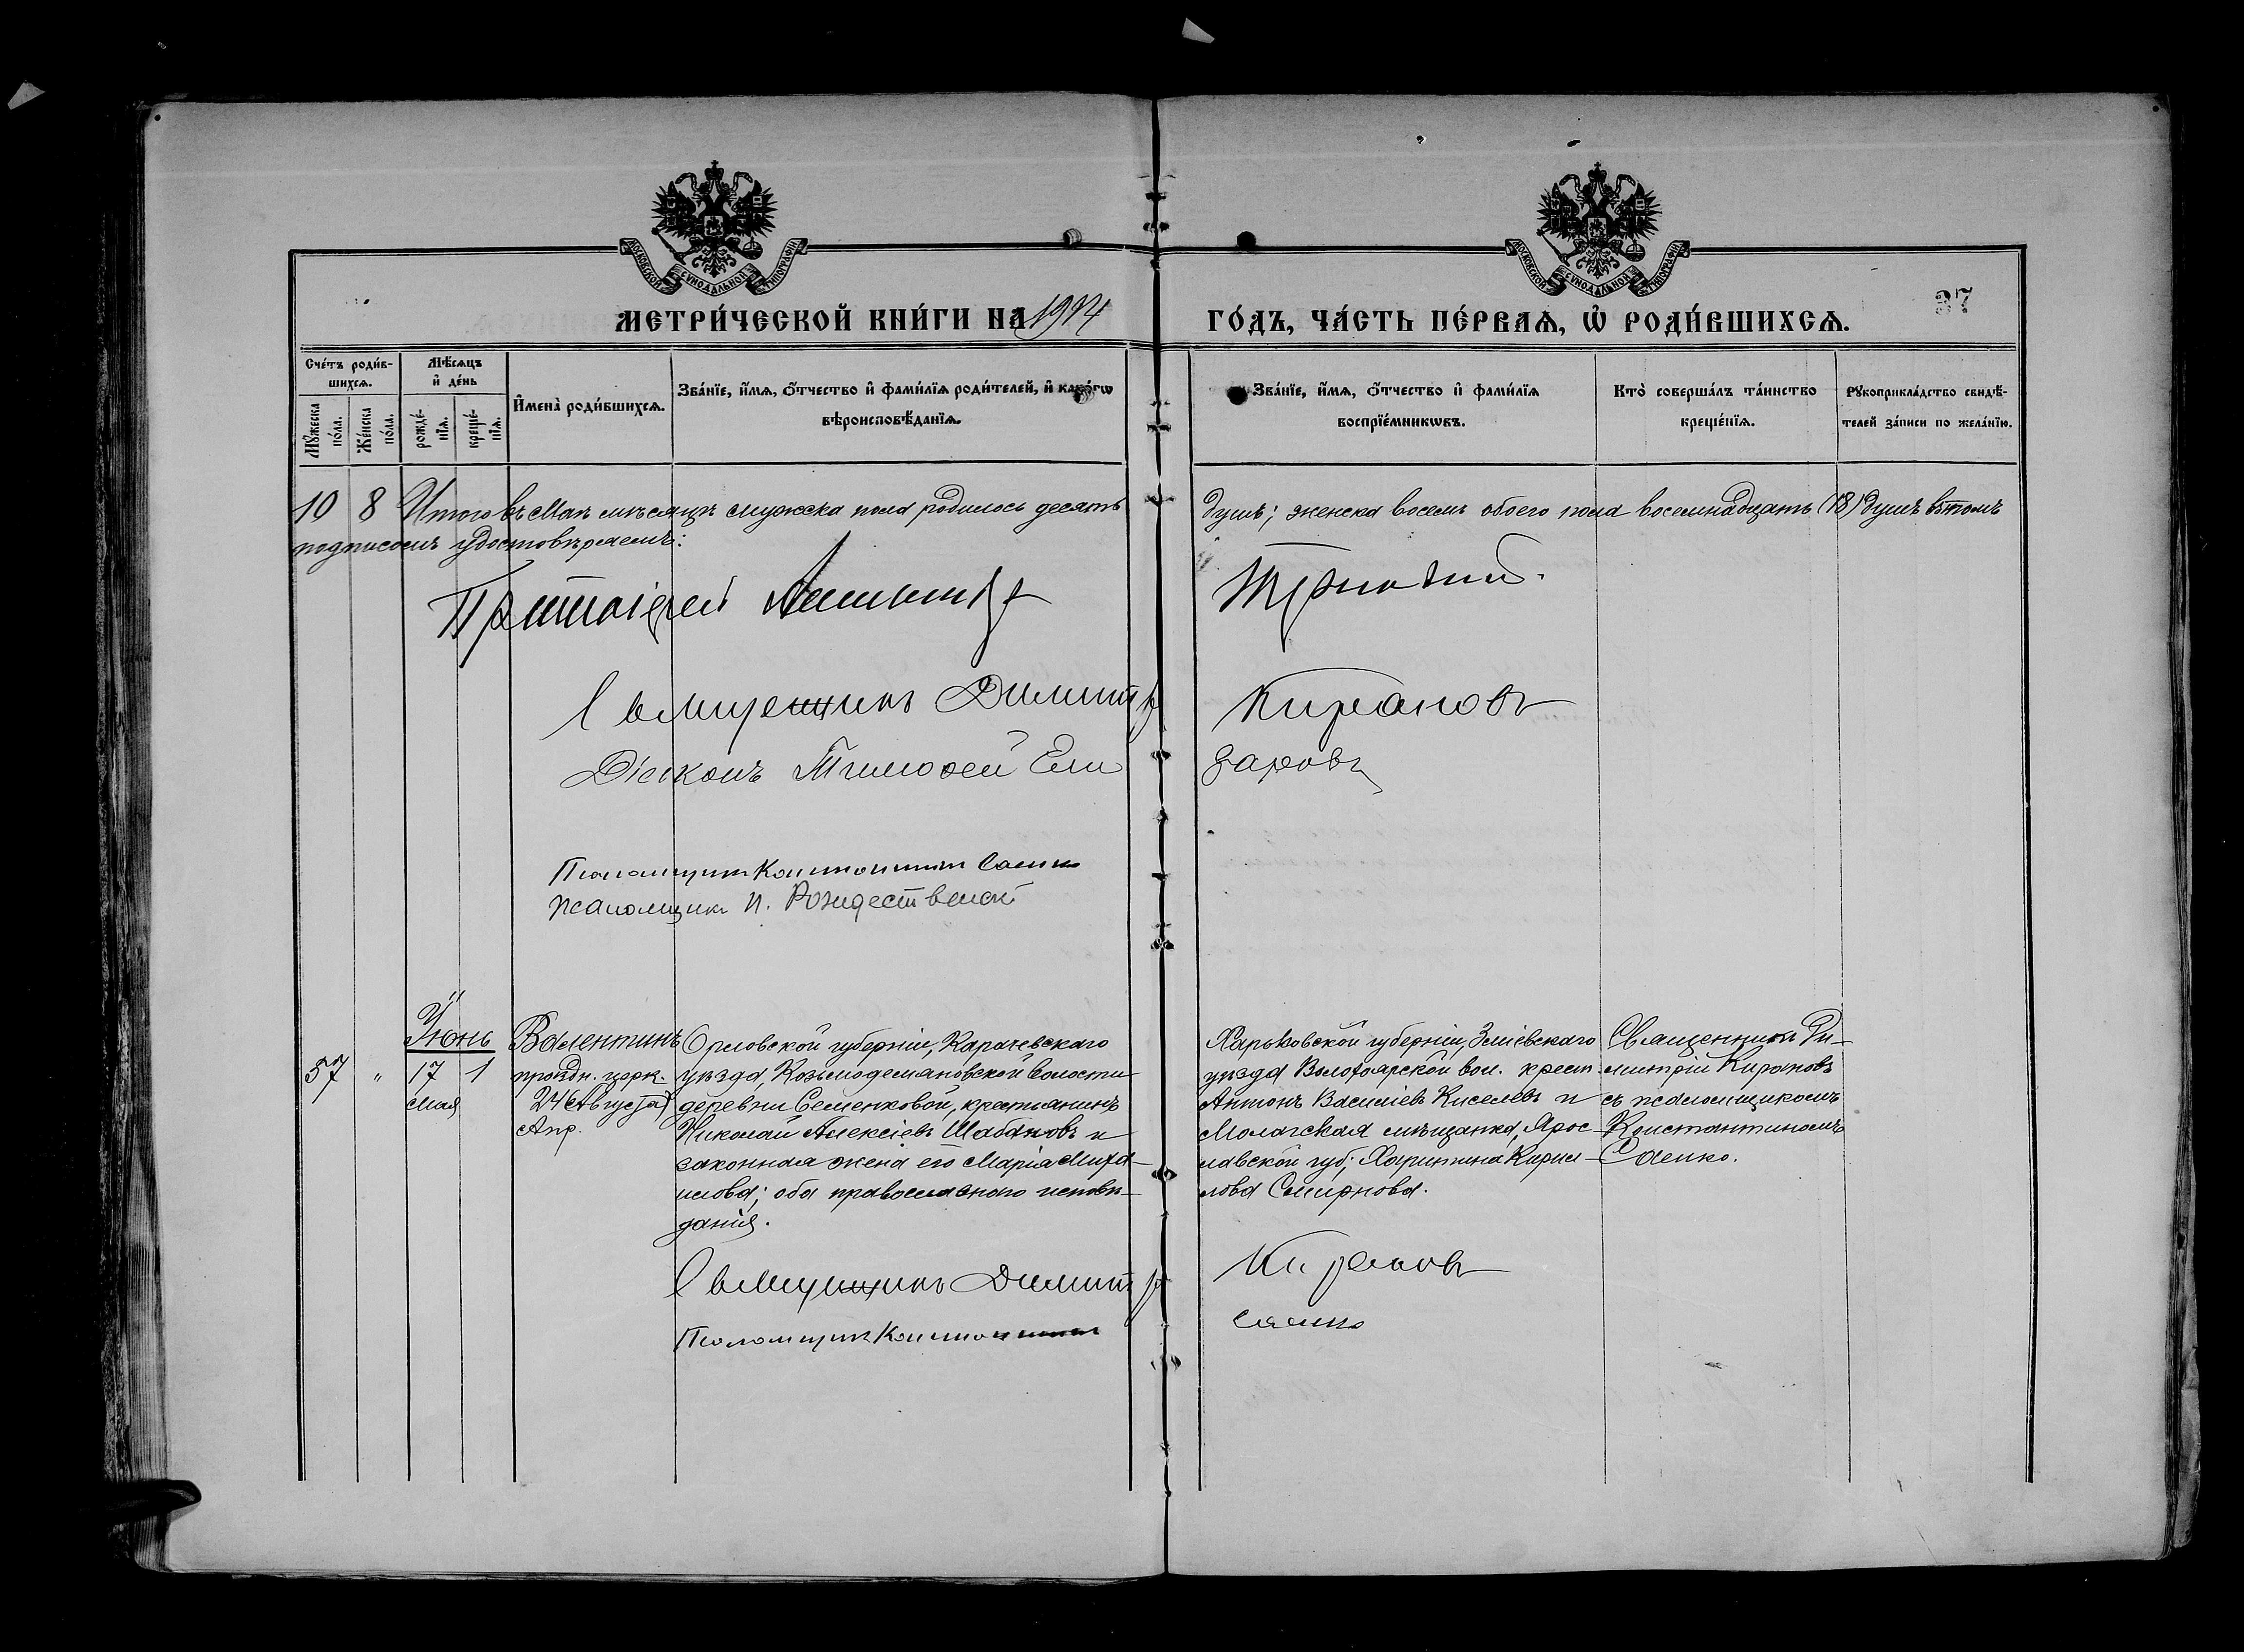 МОСКОВСКОЙ СѴНОДАЛЬНОЙ ТИПОГРАФІИ
МОСКОВСКОЙ СѴНОДАЛЬНОЙ ТИПОГРАФІИ
МЕТРИ́ЧЕСКОЙ КНИ́ГИ НА 1914 ГО́ДЪ, ЧА́СТЬ ПЕ́РВАѦ, Ѡ҆ РОДИ́ВШИХСѦ.
37
Сче́тъ роди́в-
шихсѧ.
Мꙋ́жеска по́ла.
Же́нска по́ла.
Мѣ́сѧцъ
и҆ де́нь
рожде́-
нїѧ.
креще́-
нїѧ.
И҆мена̀ роди́вшихсѧ.
Зва́нїе, и҆́мѧ, ѻ҆́тчество и҆ фами́лїѧ роди́телей, и҆ како́гѡ
вѣроисповѣ́данїѧ.
Зва́нїе, и҆́мѧ, ѻ҆́тчество и҆ фами́лїѧ
воспрїе́мникѡвъ.
Кто̀ соверша́лъ та́инство
креще́нїѧ.
Рꙋкоприкла́дство свидѣ́-
телей за́писи по жела́нїю.
10 8 Итого въ Маѣ мѣсяцѣ мужска пола родилось десять душъ; женска восемь обоего пола восемнадцать (18) душъ въ томъ
подписомъ удостовѣряемъ:
Протоіерей
Священникъ Димитр Кирановъ
Діаконъ Тимоѳей Елизаровъ
Псаломщикъ Константинъ Саенко
Псаломщикъ И. Рождественскій
Іюнь
57 " 17 1
Мая
Валентинъ
праздн. церк.
24 Августа)
Апр.
Орловской губерніи, Карачевскаго
уѣзда, Козьмодемановской волости
деревни Семенковой, крестьянинъ
Николай Алексіевъ Шабановъ и
законная жена его Марія Миха-
илова; оба православнаго исповѣ-
данія.
Харьковской губерніи, Зміевскаго
уѣзда Волохоярской вол. крест.
Антонъ Василіевъ Киселевъ и
Мологская мѣщанка, Ярос-
лавской губ; Харитина Кирил-
лова Смирнова.
Священникъ Ди-
митрій Кирановъ
съ псаломщикомъ
Константиномъ
Саенко.
Священникъ Димитр Кирановъ
Псаломщикъ Константинъ Саенко